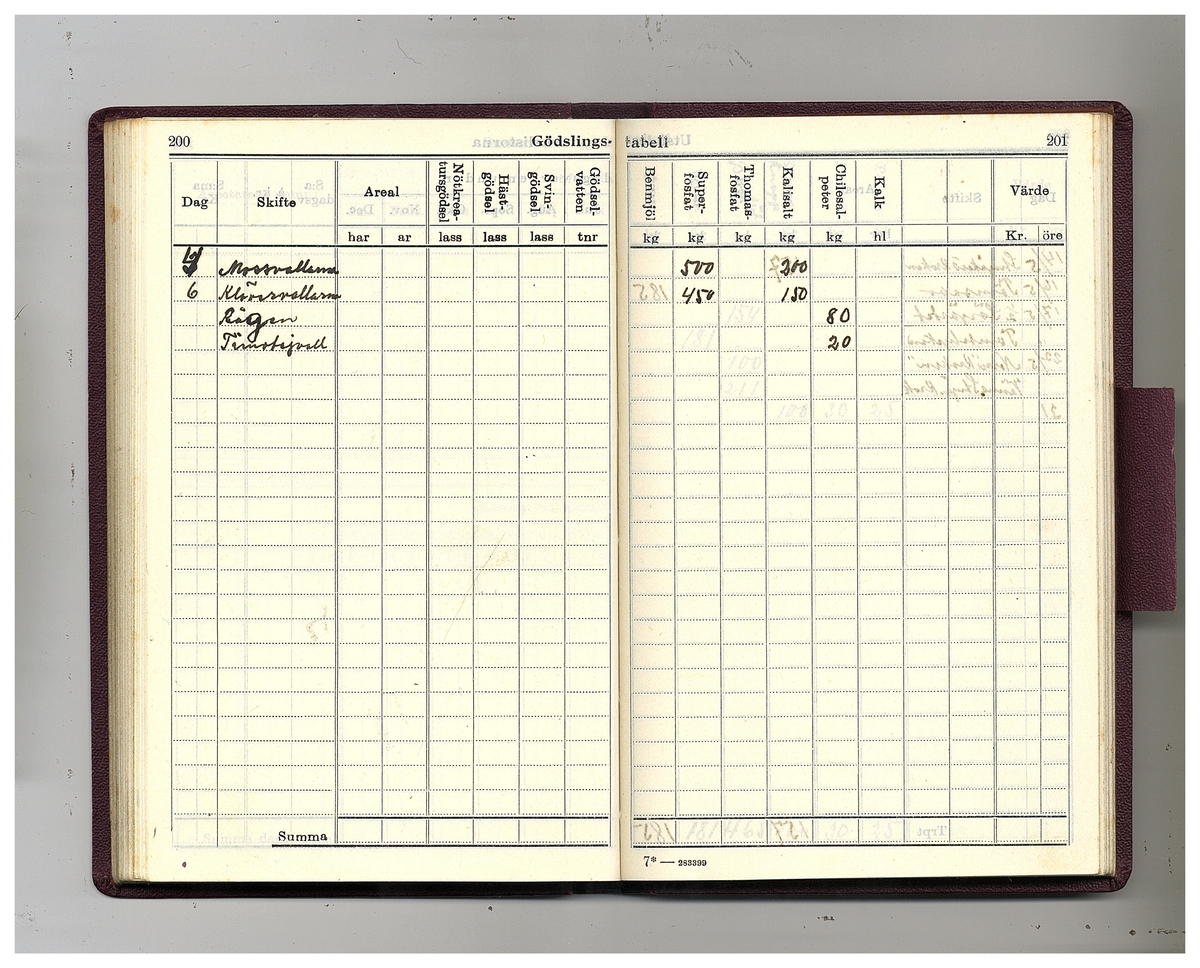 200 Gödslings-tabell 201
Dag Skifte Areal Nötkrea-tursgödsel Häst-gödsel Svin-gödsel Gödsel-vatten Benmjöl Super-fosfat Thomas-fosfat Kalisalt Chilesal-peter Kalk Värde
har ar lass lass lass tnr kg kg kg kg kg hl Kr. öre
Mossvallarna 500 200
6 Klövervallarna 450 150
Rågen 80
Timotejvall 20
Summa
7* — 283399